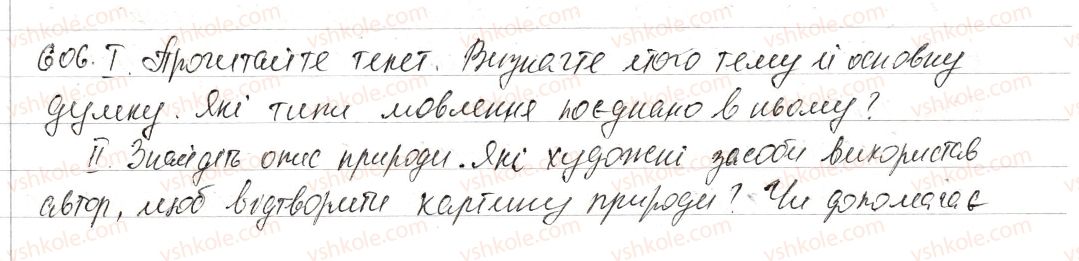 606. I. Прочитайте текст. Визначте його тему й основну
думку. Які типи мовлення поєднано в ньому?
II Знайдіть опис природи. Які художні засоби використав
автор, щоб відтворити картину природи? Чи допомагає